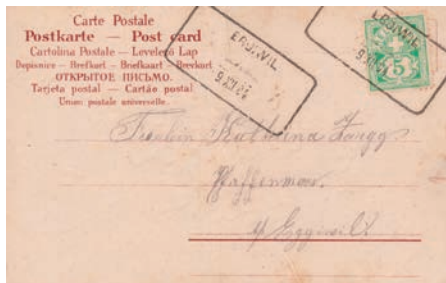 Carte Postale
Postkarte — Post card
Cartolina Postale — Levelező Lap
Dopisnice — Brefkort — Briefkaart — Brevkort
ОТКРЫТОЕ ПИСЬМО.
Tarjeta postal — Cartão postal
Union postale universelle.
ERISWIL
9 XII
5
Fräulein Katharina Zaugg
Pfaffenmoos.
p/ Eggiwil